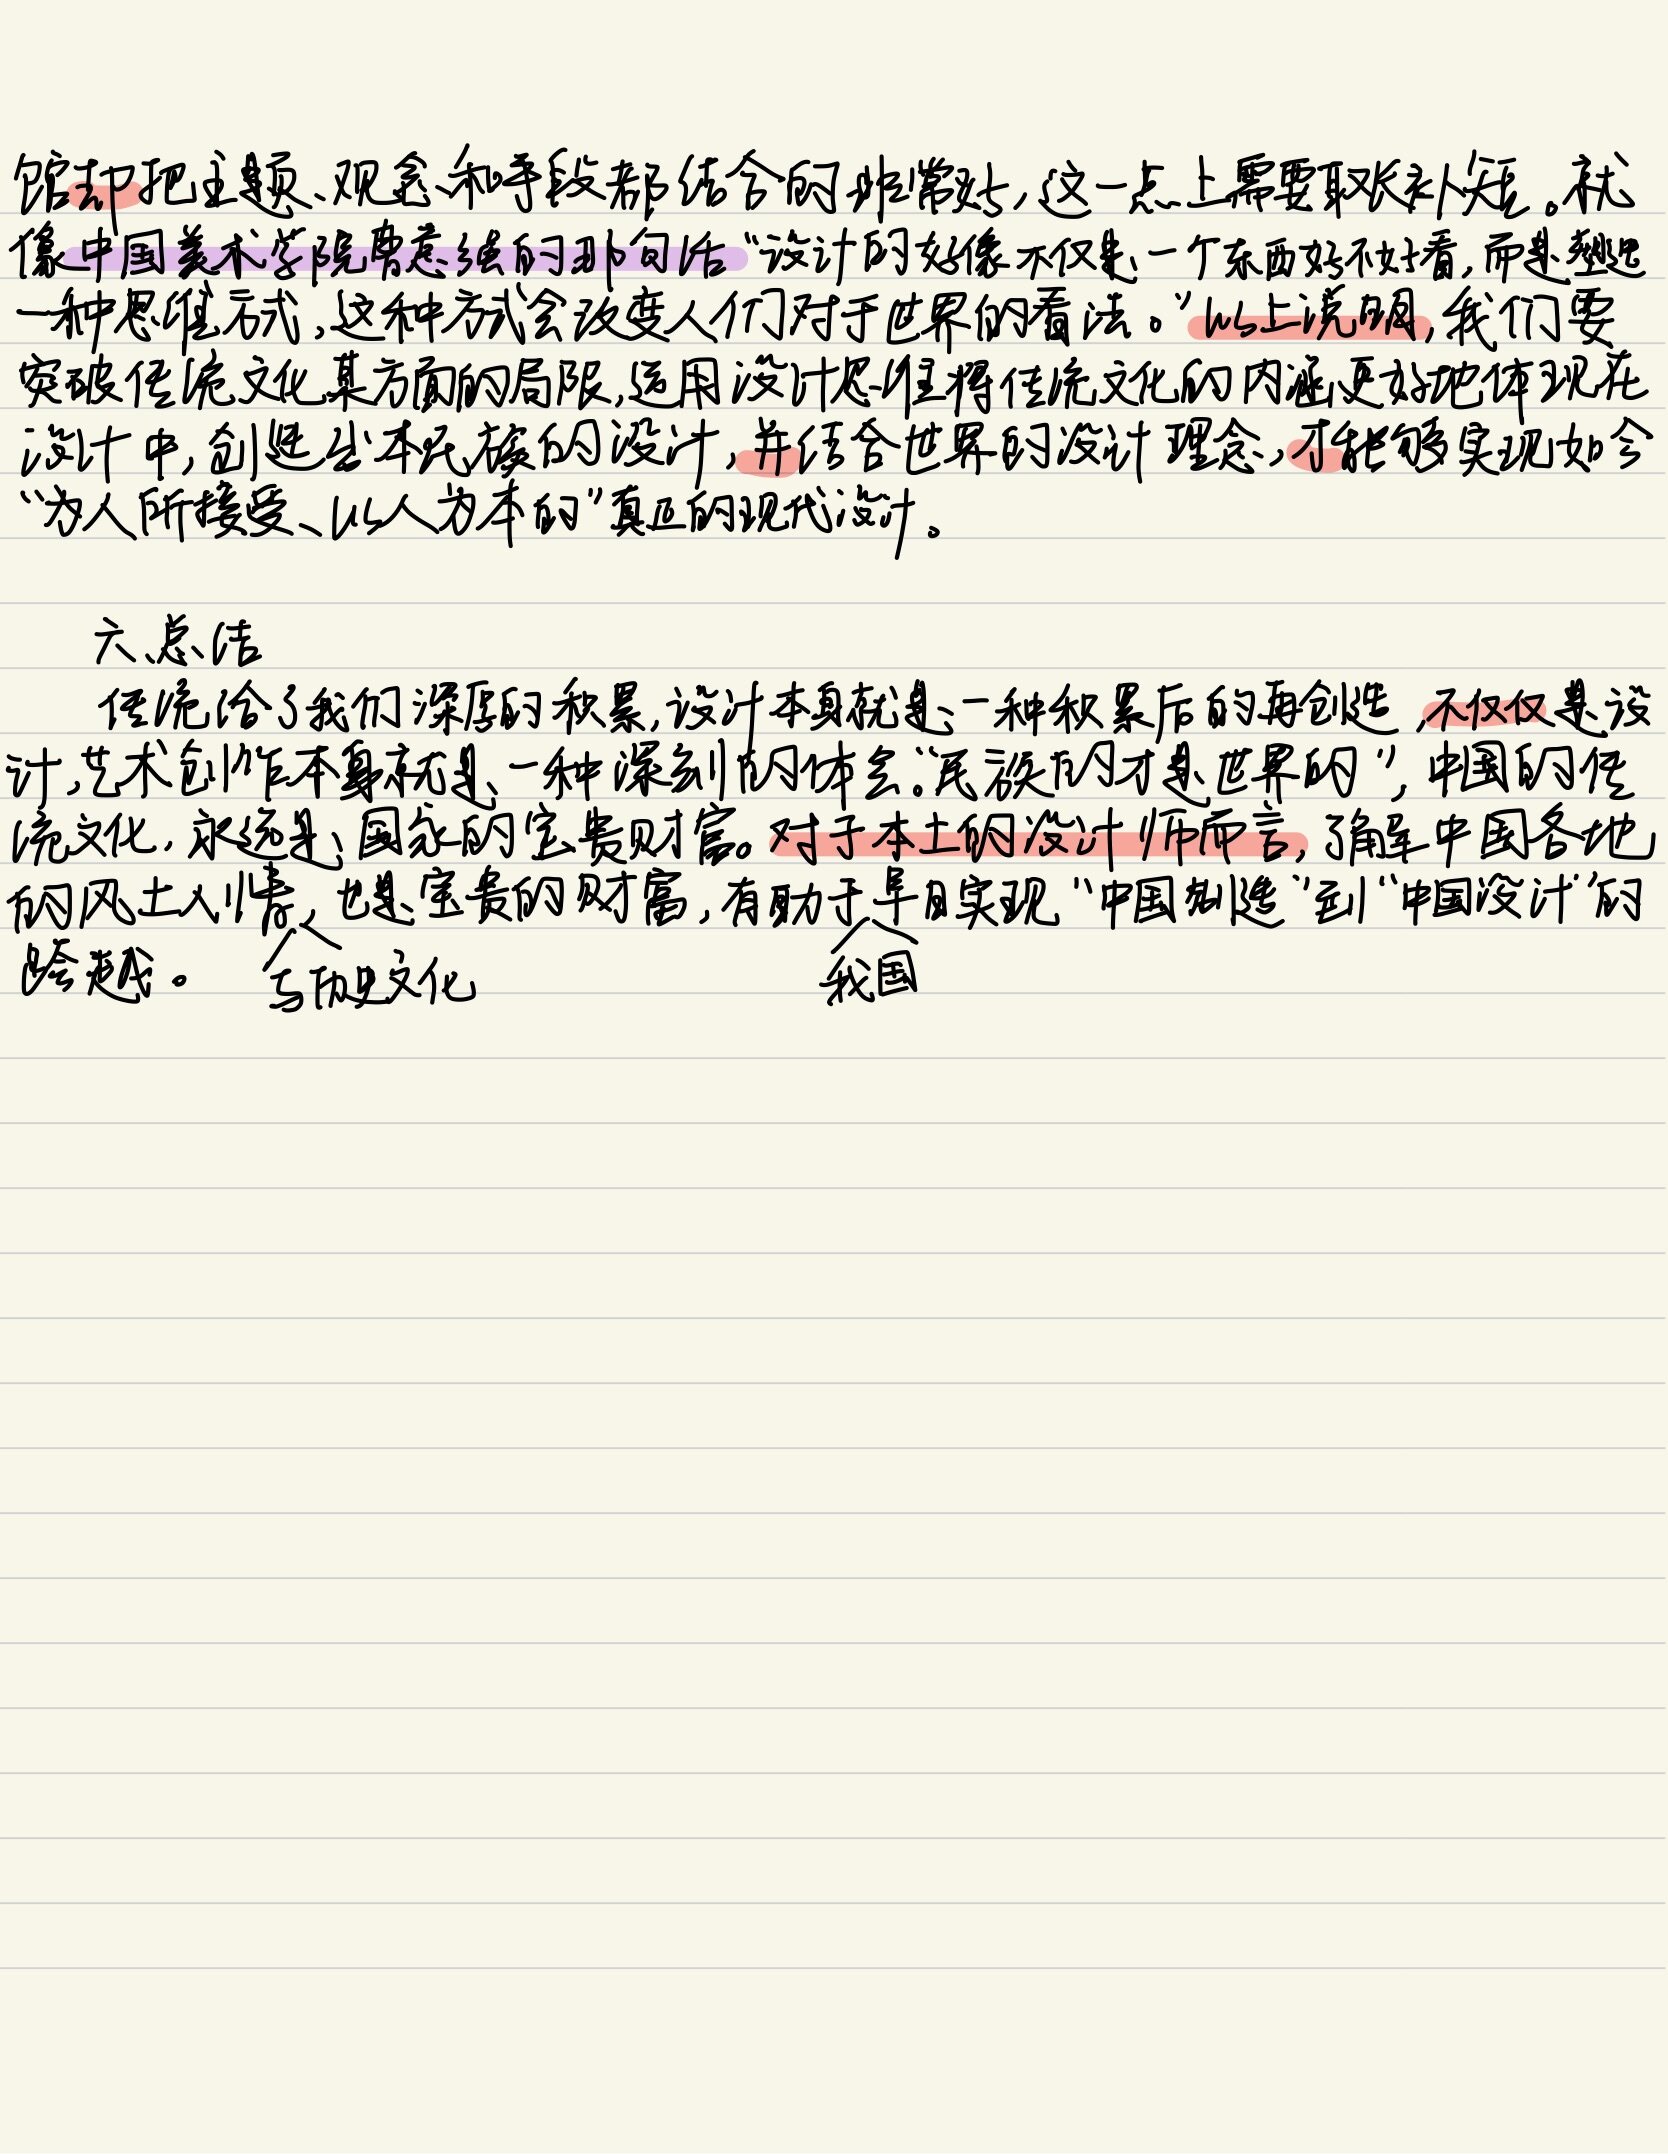 馆却把主题、观念和手段都结合的非常好，这一点上需要取长补短。就
像中国美术学院曹意强的那句话“设计的好像不仅是一个东西好不好看，而是塑造
一种思维方式，这种方式会改变人们对于世界的看法。”以上说明，我们要
突破传统文化某方面的局限，运用设计思维将传统文化的内涵更好地体现在
设计中，创造出本民族的设计，并结合世界的设计理念，才能够实现如今
“为人所接受、以人为本的”真正的现代设计。
六、总结
传统给了我们深厚的积累，设计本身就是一种积累后的再创造，不仅仅是设
计，艺术创作本身就是一种深刻的体会。“民族的才是世界的”，中国的传
统文化，永远是国家的宝贵财富。对于本土的设计师而言，了解中国各地
的风土人情，也是宝贵的财富，有助于早日实现“中国制造”到“中国设计”的
跨越。 与历史文化 我国